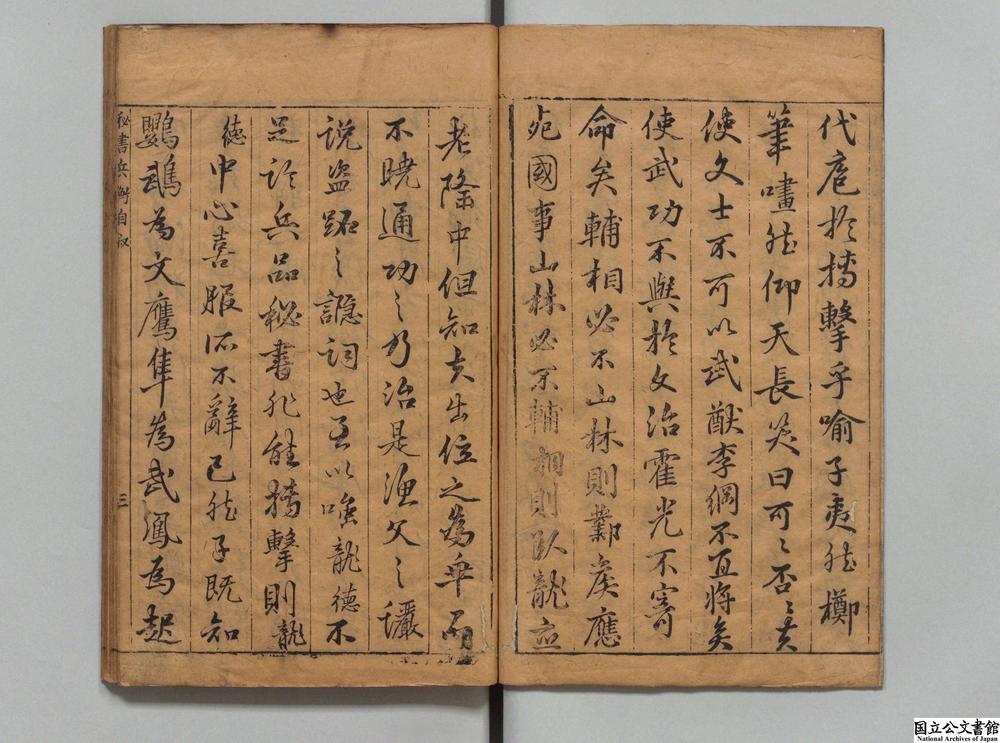 代庖於搏擊乎喻子爽然擲
筆嘯然仰天長笑曰可可否否夫
使文士不可以武猷李綱不宜將矣
使武功不與於文治霍光不寄
命矣輔相必不山林則鄴侯應
宛國事山林必不輔相則臥龍应
老隆中但知夫出位之為乖而
不曉通功之乃治是漁父之讝
說盜跖之讔詞也吾以嗤龍德不
足於兵品秘書非能搏擊則龍
德中心喜服而不辭已然子既知
鸚鵡為文鷹隼為武鳳為起
秘書兵衡自叙
三
国立公文書館
National Archives of Japan